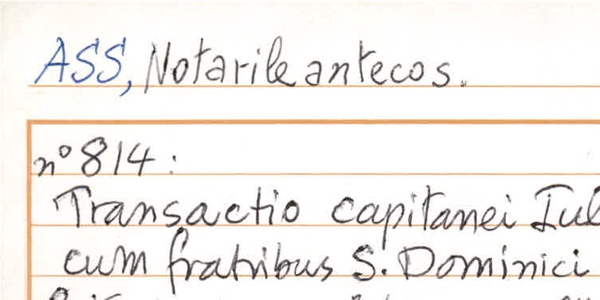 ASS, Notarile antecos.
n° 814 :
Transactio capitanei Iul
cum fratribus S. Dominici